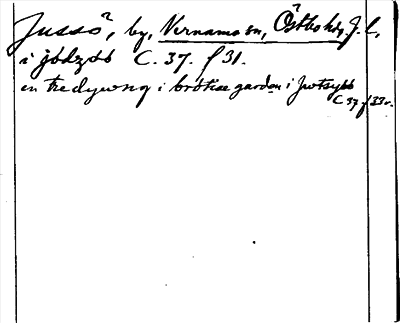 Jussö, by, Vernamo sn, Östbo hd, J. l,
i jödzöö C. 37. f 31.
en tredyung i brötiæ gardon i Jwtsyöö
C 37 f 33 v.